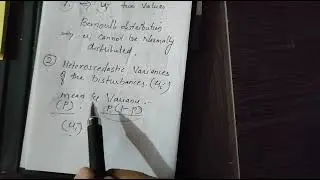 of true values
Bernoulli distribution
→ uᵢ cannot be Normally
distributed.
② Heteroscedastic Variances
of the Disturbances. (uᵢ)
mean & Variance.
(P) P(1-P)
(uᵢ)